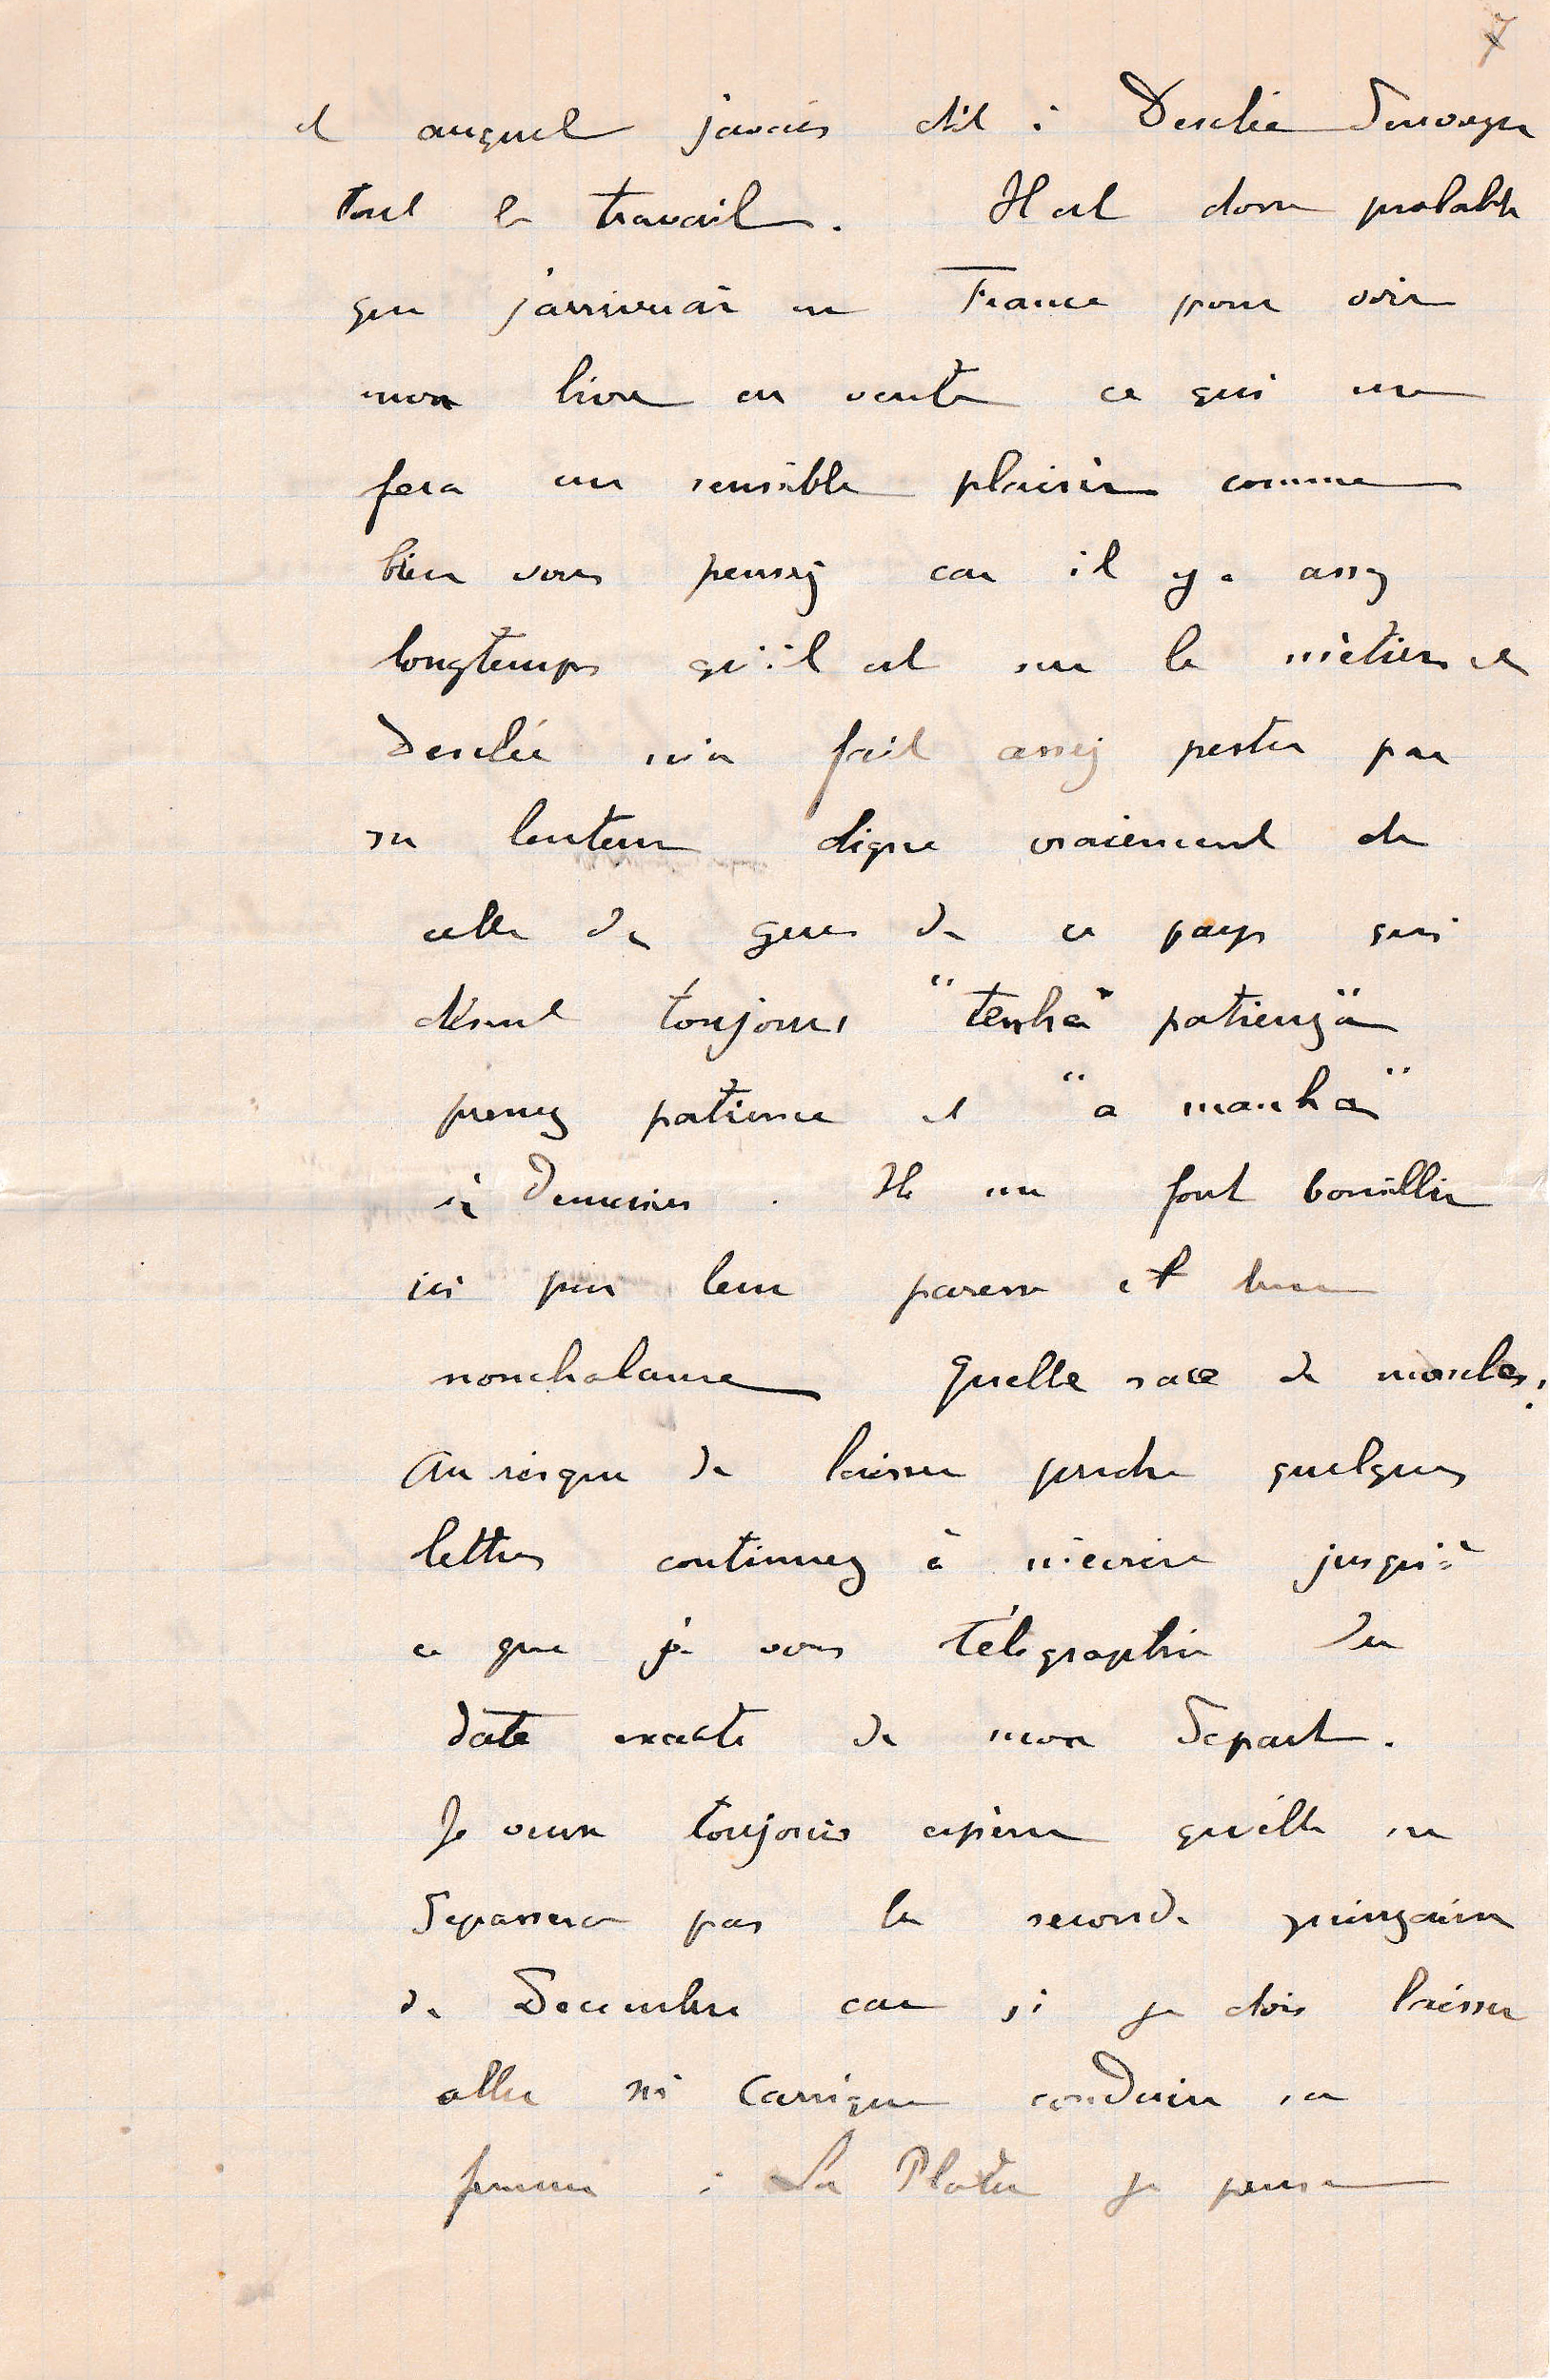 7
et auquel j'avais dit à Desclée d'envoyer
tout le travail. Il est donc probable
que j'arriverai en France pour voir
mon livre en vente ce qui me
fera un sensible plaisir comme
bien vous pensez car il y a assez
longtemps qu'il est sur le métier et
Desclée m'a fait assez pester par
sa lenteur digne vraiment de
celle des gens de ce pays qui
disent toujours "tenha patienza"
prenez patience et "a manha"
à demain. Ils me font bouillir
ici par leur paresse et leur
nonchalance Quelle race de moules!
Au risque de laisser perdre quelques
lettres continuez à m'écrire jusqu'à
ce que je vous télégraphie la
date exacte de mon départ.
Je veux toujours espérer qu'elle ne
dépassera pas la seconde quinzaine
de Décembre car si je dois laisser
aller Mr Carrique conduire sa
femme à La Plata je pense